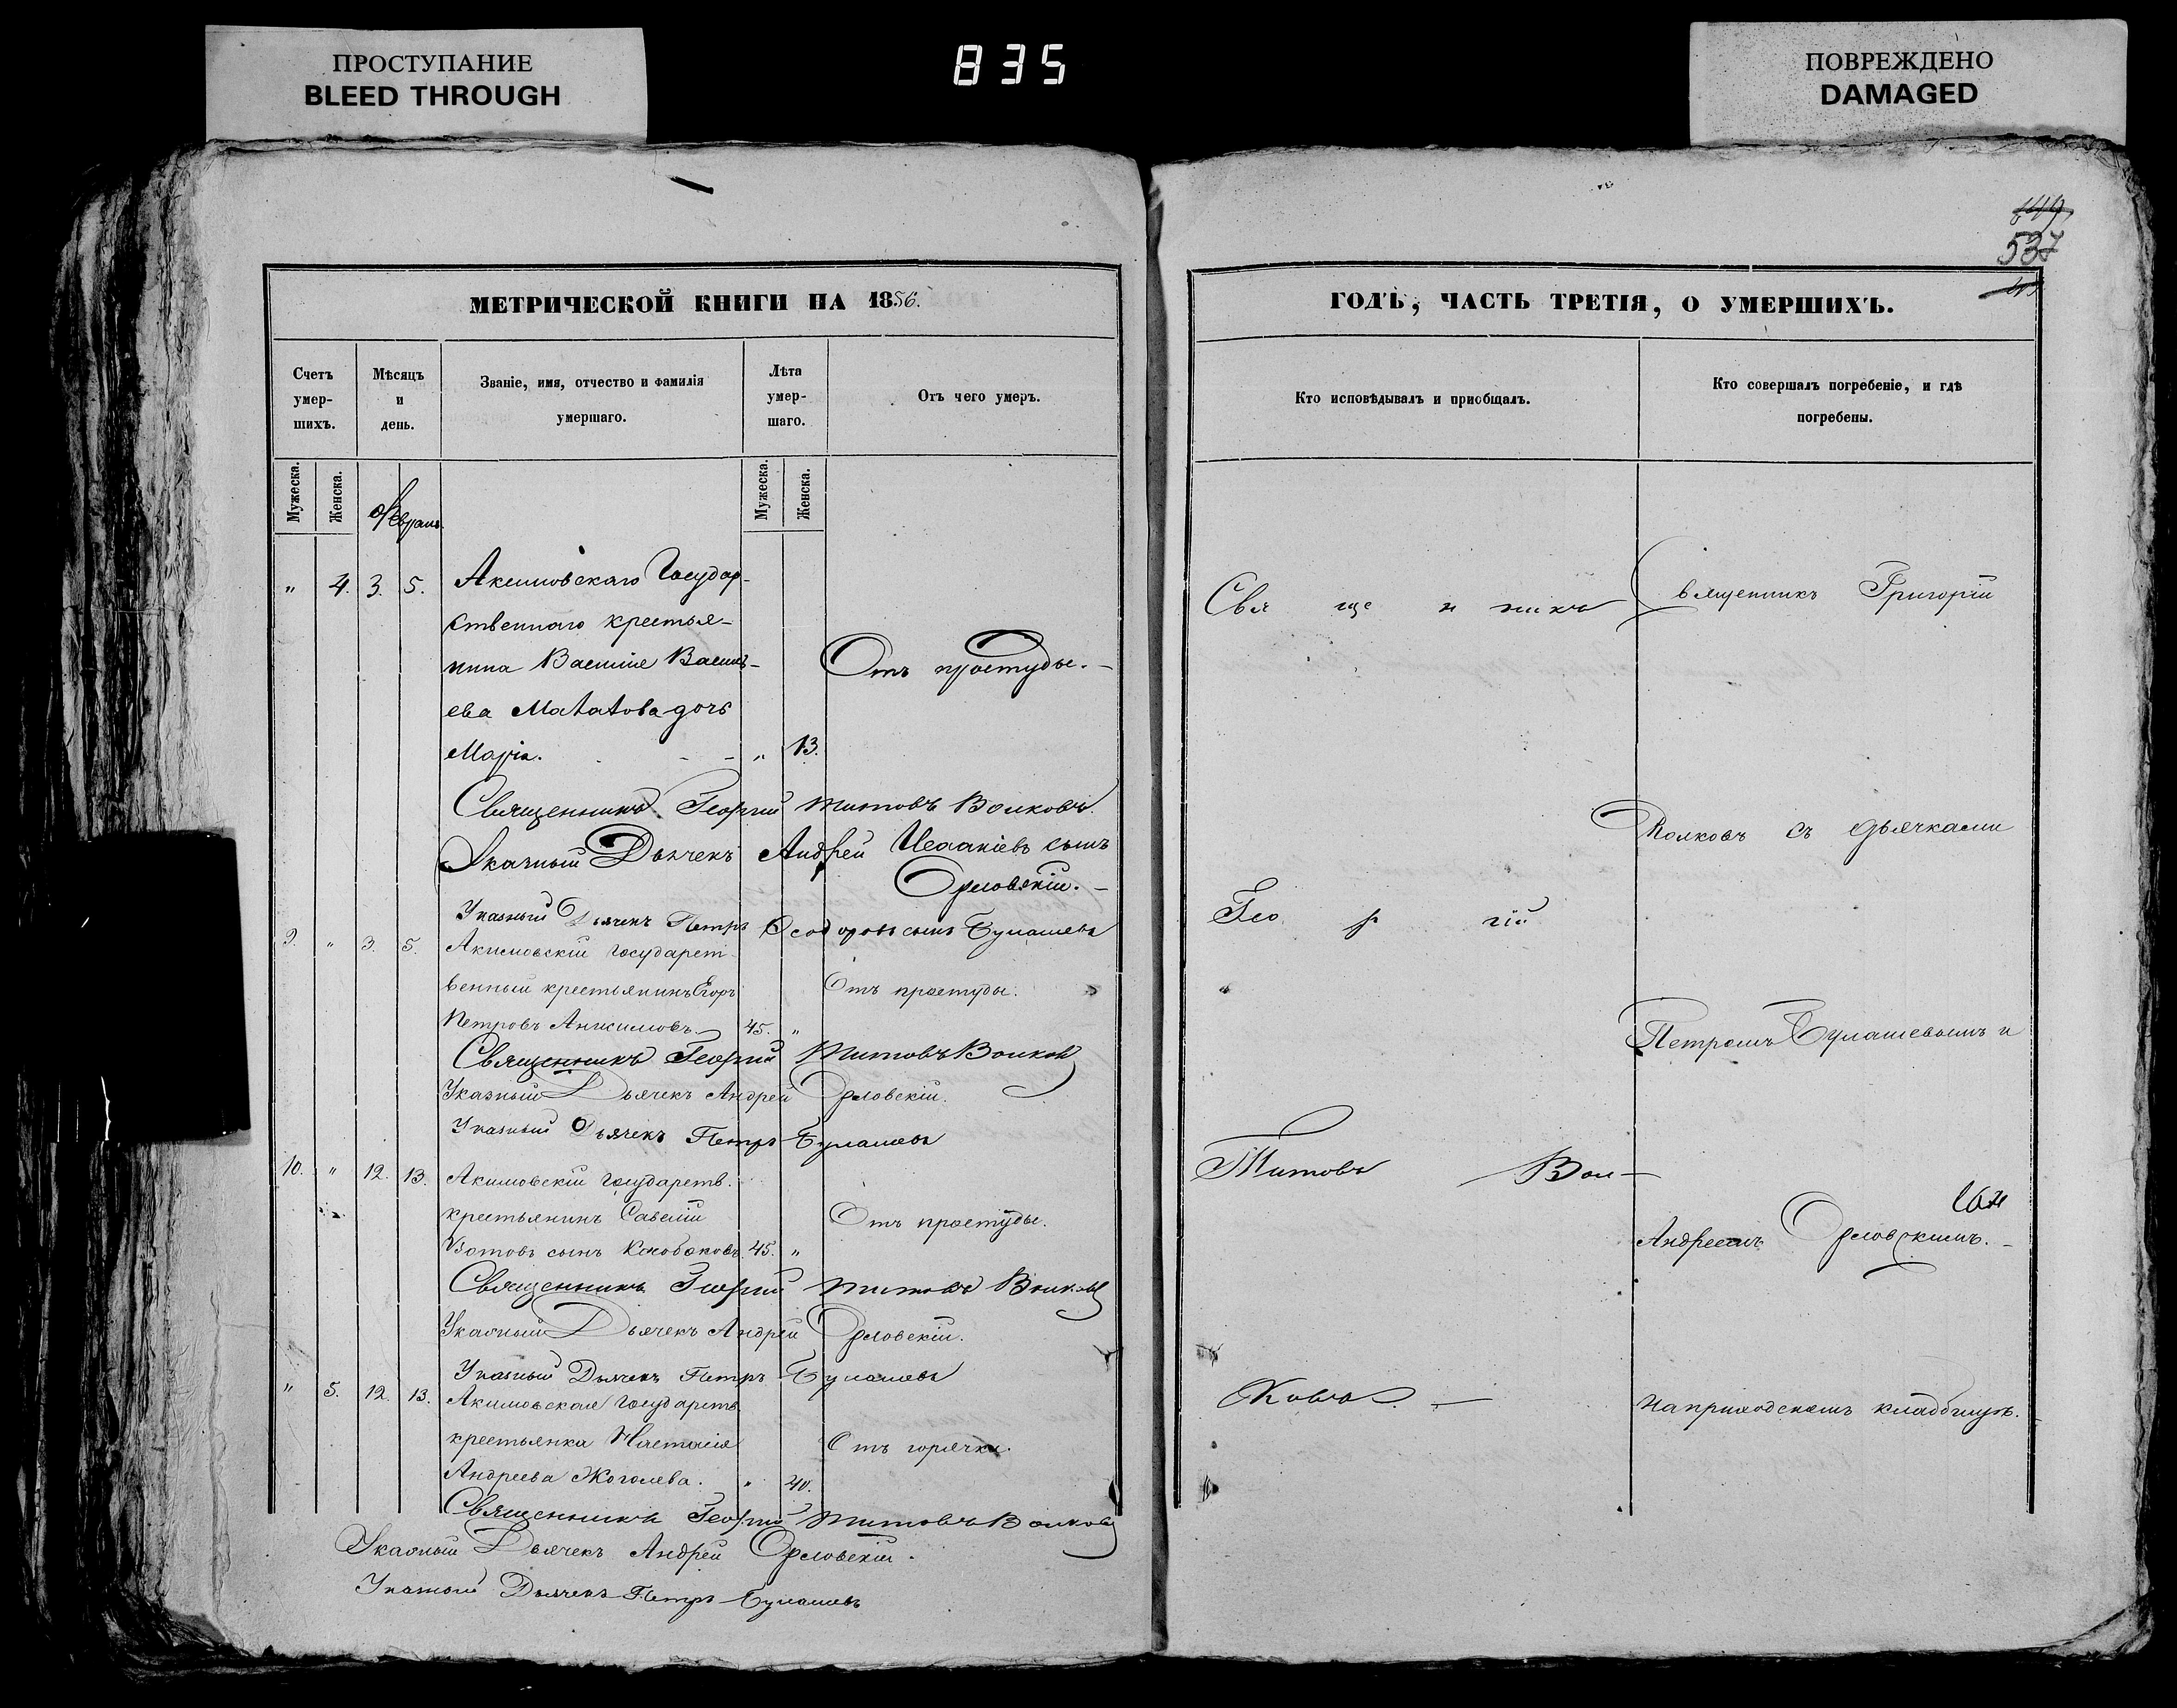 ПРОСТУПАНИЕ
BLEED THROUGH
835
ПОВРЕЖДЕНО
DAMAGED
537
МЕТРИЧЕСКОЙ КНИГИ НА 1856.
Счетъ умер-шихъ.
Мѣсяцъ и день.
Званіе, имя, отчество и фамилія умершаго.
Лѣта умер-шаго.
Отъ чего умеръ.
Мужеска.
Женска.
Мужеска.
Женска.
" 4. 3. 5. Акимовскаго Государ-
ственнаго крестья-
нина Василіе Василь-
ева дочь
Марія. " 13.
Отъ простуды.
Священникъ Георгій Титовъ Волковъ.
Указный Дьячекъ Андрей Исаакіевъ сынъ
Орловскій.
Указный Дьячекъ Петръ Ѳеодоровъ сынъ Булашевъ
9. " 3. 5. Акимовскій государст-
венный крестьянинъ Егоръ
Петровъ Анисимовъ. 45. "
Отъ простуды.
Священникъ Георгій Титовъ Волковъ
Указный Дьячекъ Андрей Орловскій.
Указный Дьячекъ Петръ Булашевъ
10. " 12. 13. Акимовскій государств.
крестьянинъ Савелій
сынъ 45. "
Отъ простуды.
Священникъ Георгій Титовъ Волковъ
Указный Дьячекъ Андрей Орловскій.
Указный Дьячекъ Петръ Булашевъ
" 5. 12. 13. Акимовская государств.
крестьянка Настасія
Андреева Жоголева. " 40.
Отъ горячки.
Священникъ Георгій Титовъ Волковъ
Указный Дьячекъ Андрей Орловскій.
Указный Дьячекъ Петръ Булашевъ
ГОДЪ, ЧАСТЬ ТРЕТІЯ, О УМЕРШИХЪ.
Кто исповѣдывалъ и пріобщалъ.
Кто совершалъ погребеніе, и гдѣ погребены.
Свя ще н никъ
Гео р гій
Титовъ Вол-
ковъ.
Священникъ Григорій
Волковъ съ дьячками
Петромъ Булашевымъ и
Андреемъ Орловскимъ.
На приходскомъ кладбищѣ.